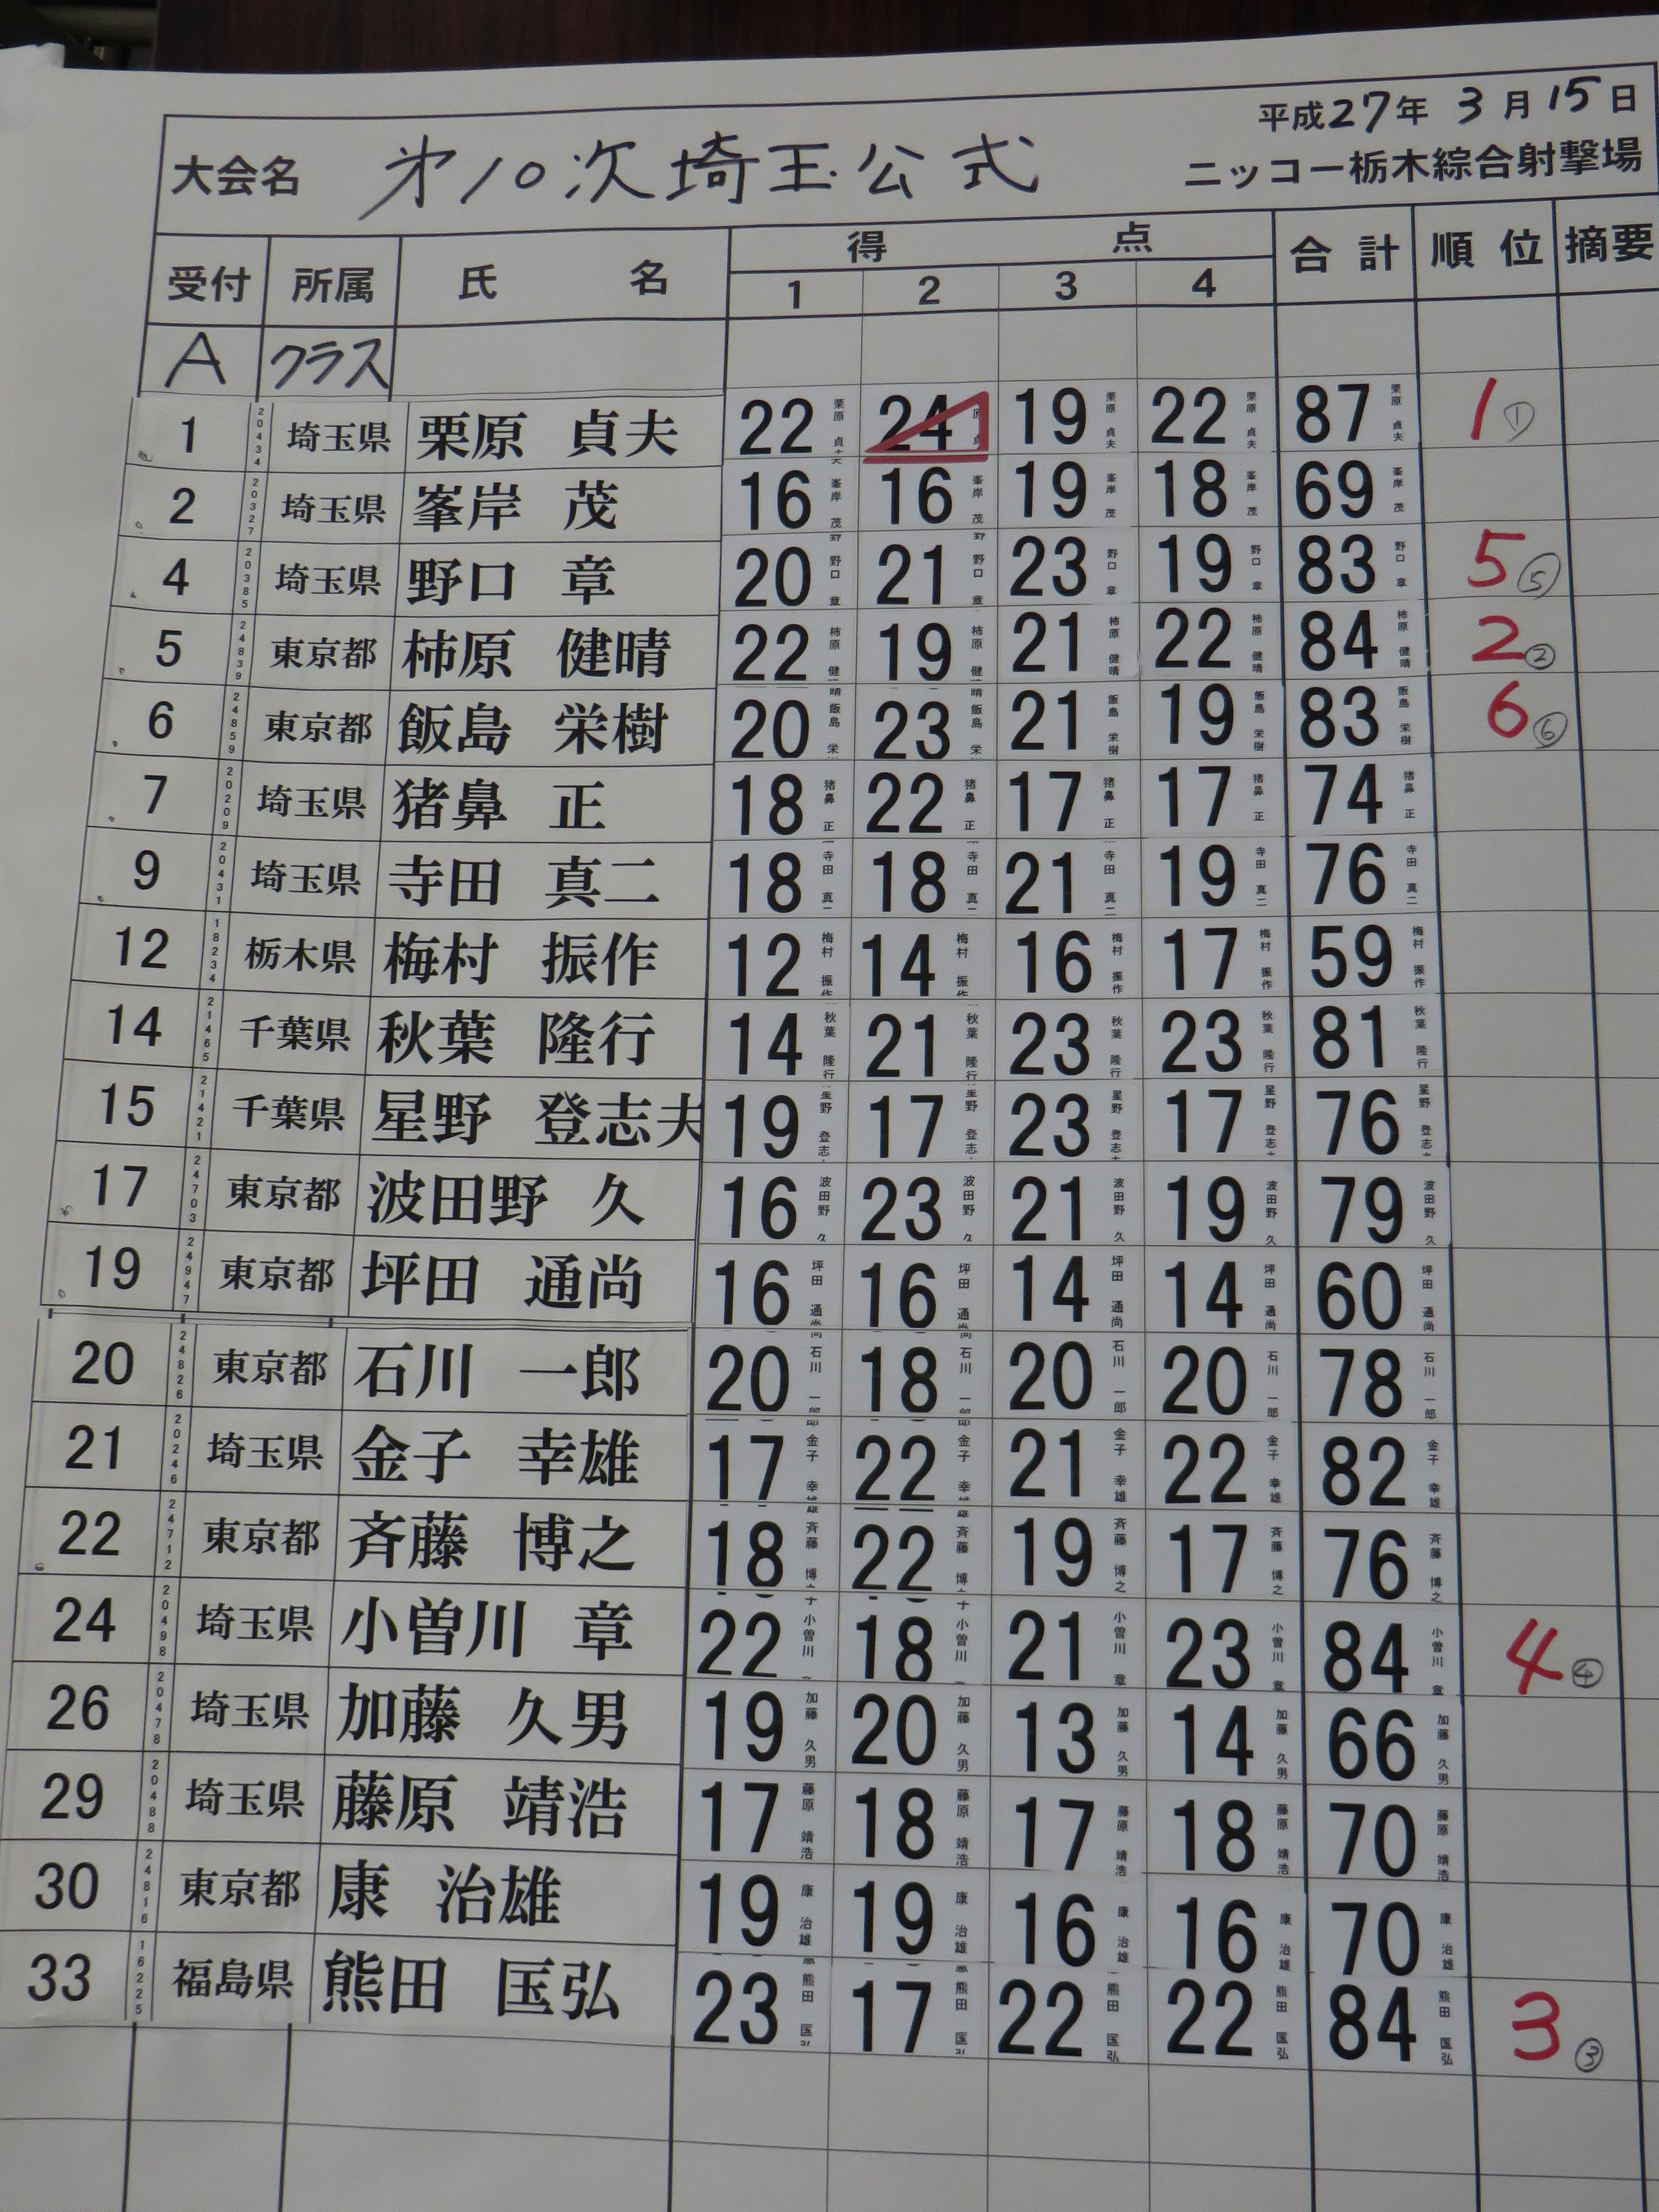 平成27年 3月15日
大会名 第10次埼玉公式 ニッコー栃木綜合射撃場
受付 所属 氏名 得点 合計 順位 摘要
1 2 3 4
A クラス
1 20434 埼玉県 栗原 貞夫 22 24 19 22 87 1 ①
2 20327 埼玉県 峯岸 茂 16 16 19 18 69
4 20385 埼玉県 野口 章 20 21 23 19 83 5 ⑤
5 24839 東京都 柿原 健晴 22 19 21 22 84 2 ②
6 24859 東京都 飯島 栄樹 20 23 21 19 83 6 ⑥
7 20209 埼玉県 猪鼻 正 18 22 17 17 74
9 20431 埼玉県 寺田 真二 18 18 21 19 76
12 18234 栃木県 梅村 振作 12 14 16 17 59
14 21465 千葉県 秋葉 隆行 14 21 23 23 81
15 21421 千葉県 星野 登志夫 19 17 23 17 76
17 24703 東京都 波田野 久 16 23 21 19 79
19 24947 東京都 坪田 通尚 16 16 14 14 60
20 24826 東京都 石川 一郎 20 18 20 20 78
21 20246 埼玉県 金子 幸雄 17 22 21 22 82
22 24712 東京都 斉藤 博之 18 22 19 17 76
24 20498 埼玉県 小曽川 章 22 18 21 23 84 4 ④
26 20478 埼玉県 加藤 久男 19 20 13 14 66
29 20488 埼玉県 藤原 靖浩 17 18 17 18 70
30 24816 東京都 康 治雄 19 19 16 16 70
33 16225 福島県 熊田 匡弘 23 17 22 22 84 3 ③